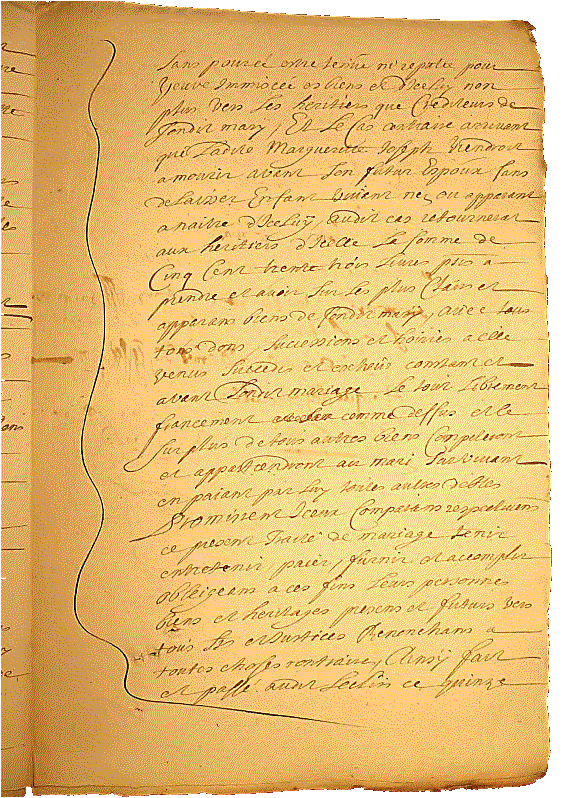 sans pour ce estre tenue ni reputée pour
veuve immiscée es biens et d'iceluy non
plus vers les heritiers que crediteurs de
sondit mary, Et le cas contraire arrivant
que ladite Marguerite Joseph viendroit
a mourir avant son futur Espoux sans
delaisser Enfant vivant né, ou apparant
a naitre d'iceluy, audit cas retournera
aux heritiers d'icelle la somme de
Cinq Cent trente trois livres pris a
prendre et avoir sur les plus clairs et
apparans biens de sondit mary, avec tous
tous dons successions et hoiries a elle
venus succedés et escheus constant et
avant sondit mariage le tout librement
francement comme dessus et le
surplus de tous autres biens Competeront
et appartiendront au mari survivant
en paiant par luy toutes autres debtes
Promirent iceux Comparans respectivemt
ce present traité de mariage tenir
entretenir, paier, furnir et acomplir
obligeans a ces fins leurs personnes
biens et heritages presens et futurs vers
tous Srs et Justices Renonchans a
toutes choses contraires, Ainsy fait
et passé audit Leclin ce quinze